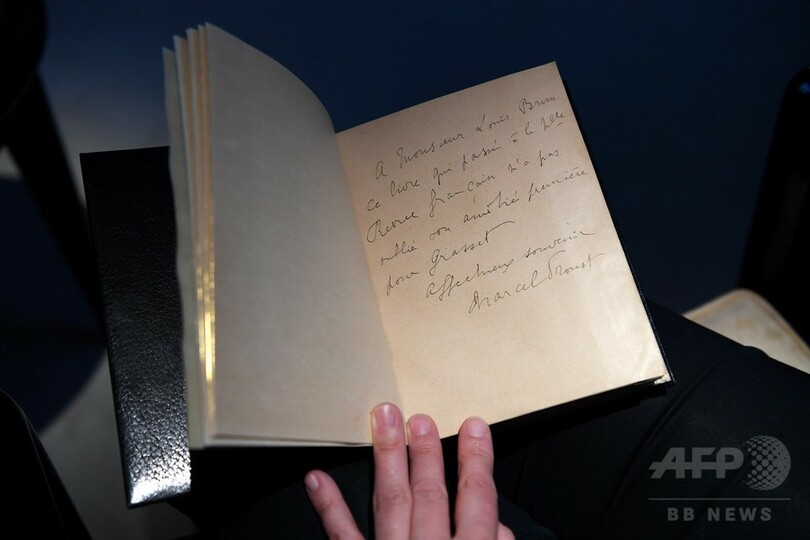 A Monsieur Louis Brun
ce livre qui passé à la Nlle
Revue française n'a pas
oublié son amitié première
pour Grasset
Affectueux souvenir
Marcel Proust
AFP
BB NEWS